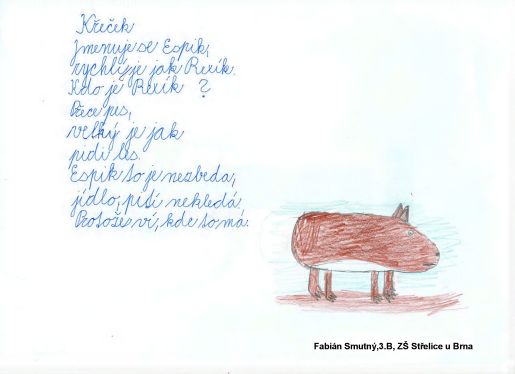 Křeček
Jmenuje se Espik,
rychlý je jak Rexík.
Kdo je Rexík ?
Přece pes,
velký je jak
pidi les.
Espik to je nezbeda,
jídlo, pití nehledá.
Protože ví, kde to má.
Fabián Smutný,3.B, ZŠ Střelice u Brna